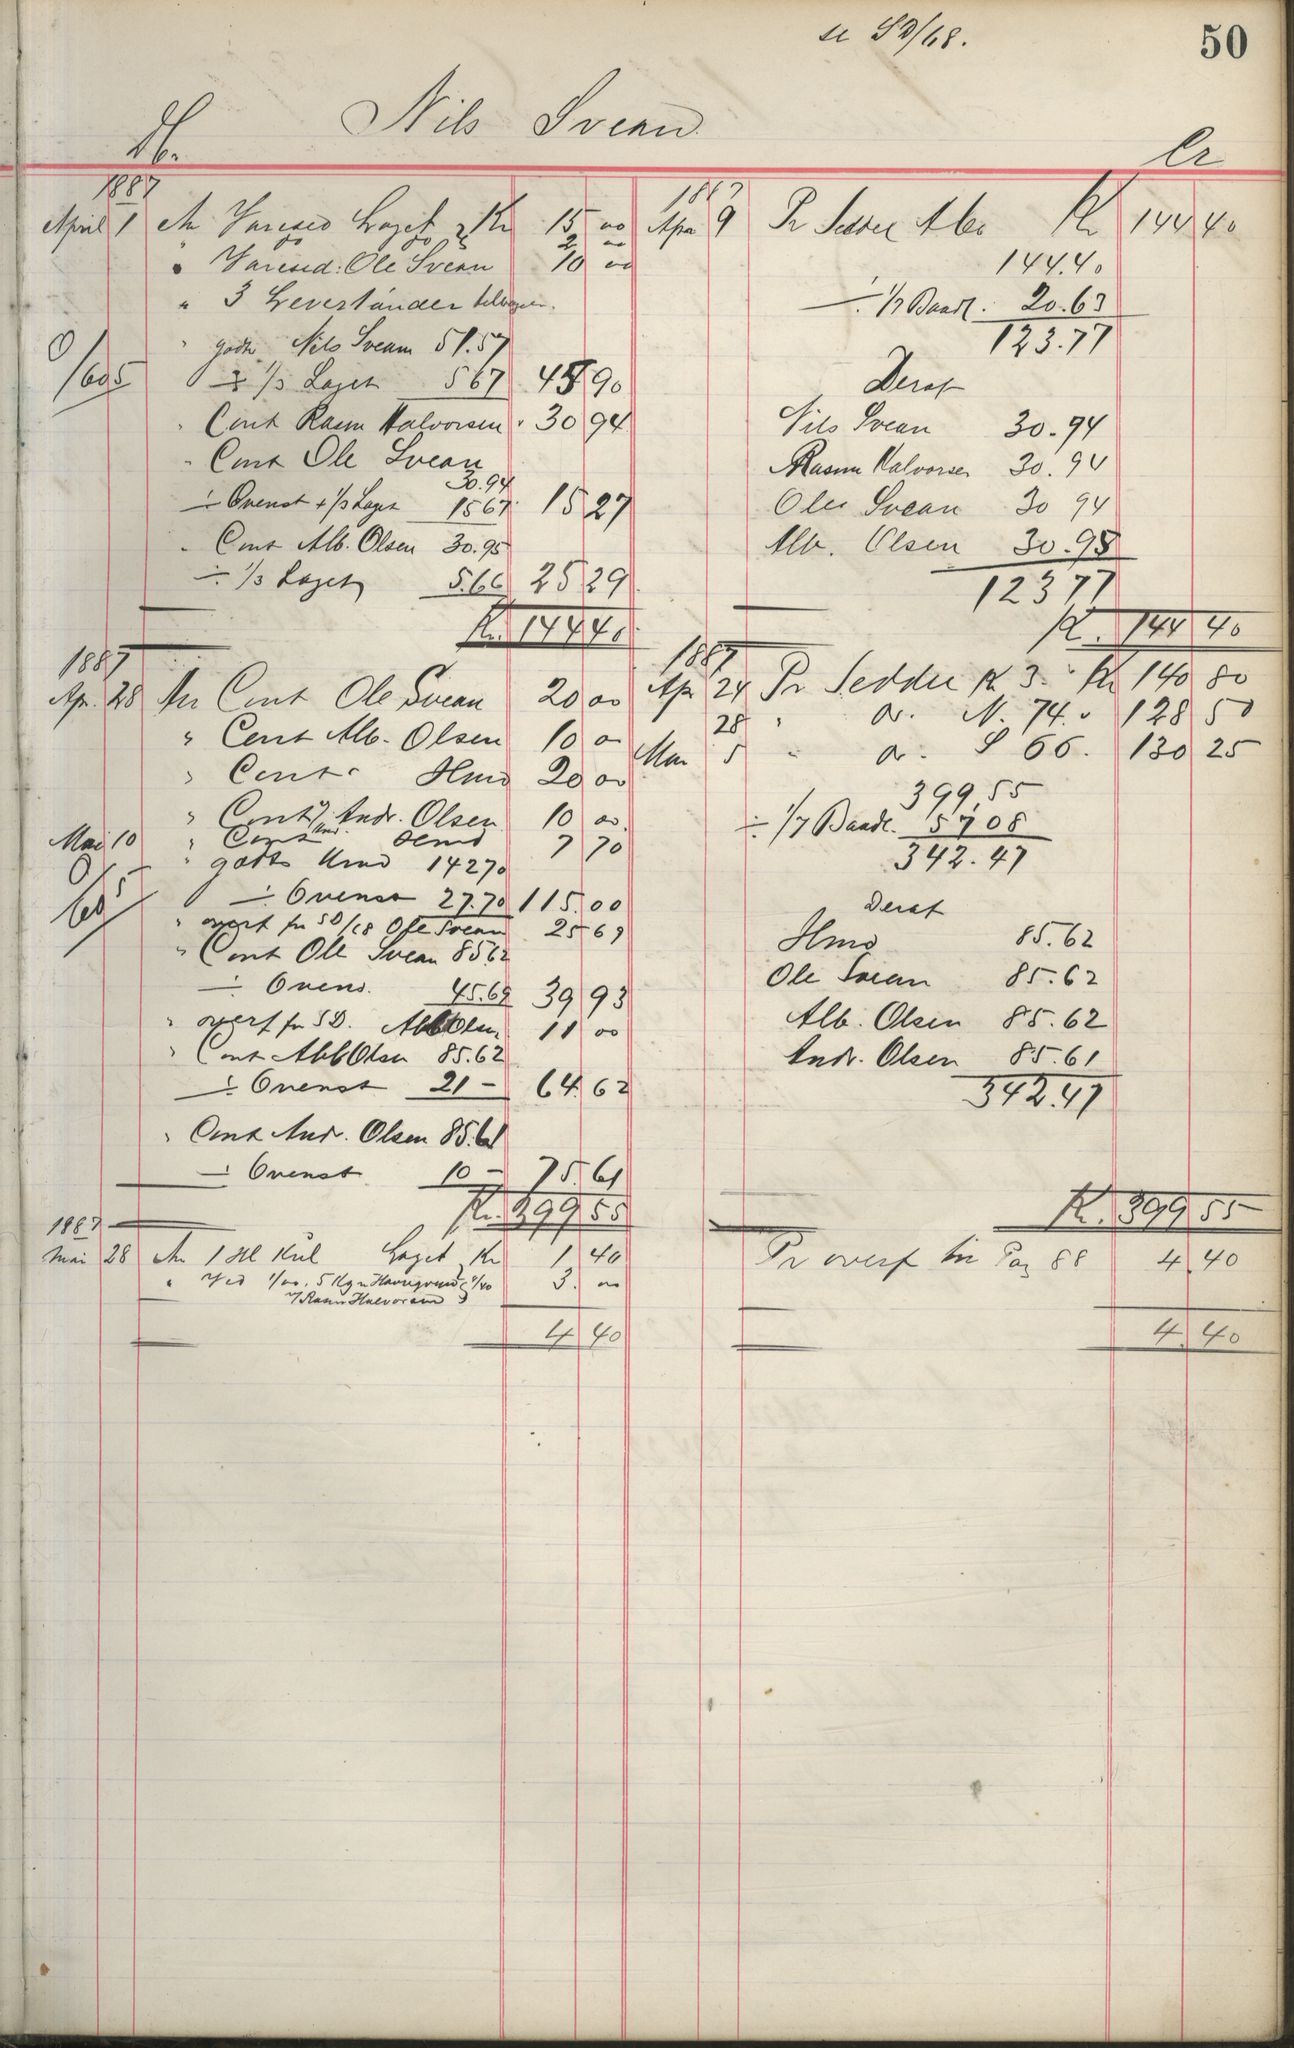 se SD/68.
50
Nils Svean
Dr.
Cr
1887
April 1 An Varesed Laget Kr 15 00
" do do 2 00
" Varesed: Ole Svean 10 00
" 3
" godts Nils Svean 51.57
0/605
÷ 1/3 Laget 567 45 90
" Cont Rasm Halvorsen " 30 94
" Cont Ole Svean
30.94
÷ Ovenst + 1/3 Laget 1567 15 27
" Cont Alb. Olsen 30.95
÷ 1/3 Laget 5.66 25 29
Kr. 144 40
1887
Apr. 28 An Cont Ole Svean 20 00
" Cont Alb. Olsen 10 0
" Cont. Hmd 20 00
" Cont Andr. Olsen 10 00.
Mai 10 " Cont Hmd 7 70
" godts Hmd 14270
0/605
÷ Ovenst 27.70 115.00
" overf fra SD/68 Ole Svean 25 69
" Cont Ole Svean 8562
÷ Ovens. 45.69 39 93
" overf fra SD. Alb Olsen 11 00
" Cont Alb Olsen 85.62
÷ Ovenst 21 – 64.62
" Cont Andr. Olsen 85.61
÷ Ovenst 10 – 75.61
Kr. 399 55
1887
Mai 28 An 1 Hl Kul Laget Kr 1 40
" Ved 1/00. 5 Kg 1/40 3. 00
v/ Rasm Halvorsen
4 40
1887
Apr 9 Pr Seddel Kr 144 40
144.40
÷ 1/7 Baadl. 20.63
123.77
Deraf
Nils Svean 30.94
Rasm Halvorsen 30.94
Ole Svean 30 94
Alb. Olsen 30.95
123 77
Kr. 144 40
1887
Apr 24 Pr Sedder K 3. Kr 140 80
28 " do. N. 74. " 128 50
Mai 5 " do. S 66. 130 25
399,55
÷ 1/7 Baadl. 5708
342.47
Deraf
Hmd 85.62
Ole Svean 85.62
Alb. Olsen 85.62
Andr. Olsen 85.61
342.47
Kr. 399 55
Pr overf til Pag 88 4 40
4 40